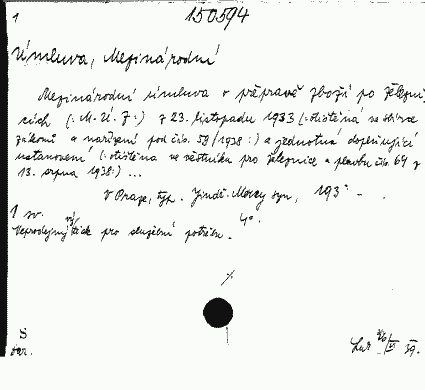 1 150594
Úmluva, Mezinárodní
Mezinárodní úmluva o přepravě zboží po železni-
cích (: M. Ú. Ž :) z 23. listopadu 1933 (: otištěná ve sbírce
zákonů a nařízení pod čís. 58/1938 :) a jednotná doplňující
ustanovení (: otištěna ve věstníku pro železnice a plavbu čís. 64 z
13. srpna 1938 :) ...
V Praze, typ. Jindř. Mercy syn, 193? - .
1 sv. 4°.
Neprodejný výtisk pro služební potřebu.
S
Lur 39.